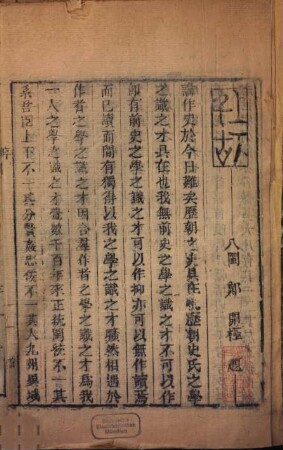 八閩 鄭 開極 題
論作史於今日難矣歷朝之史具在也歷朝史氏之學
之識之才具在也我無前史之學之識之才不可以作
卽有前史之學之識之才可以作抑亦可以無作讀焉
而已讀而間有獨得以我之學之識之才驟然相遇於
作者之學之識之才因合羣作者之學之識之才為我
一人之學之識之才覺數千百年來正統閏統不一其
系君臣上下不一其分賢姦忠佞不一其人九州異域